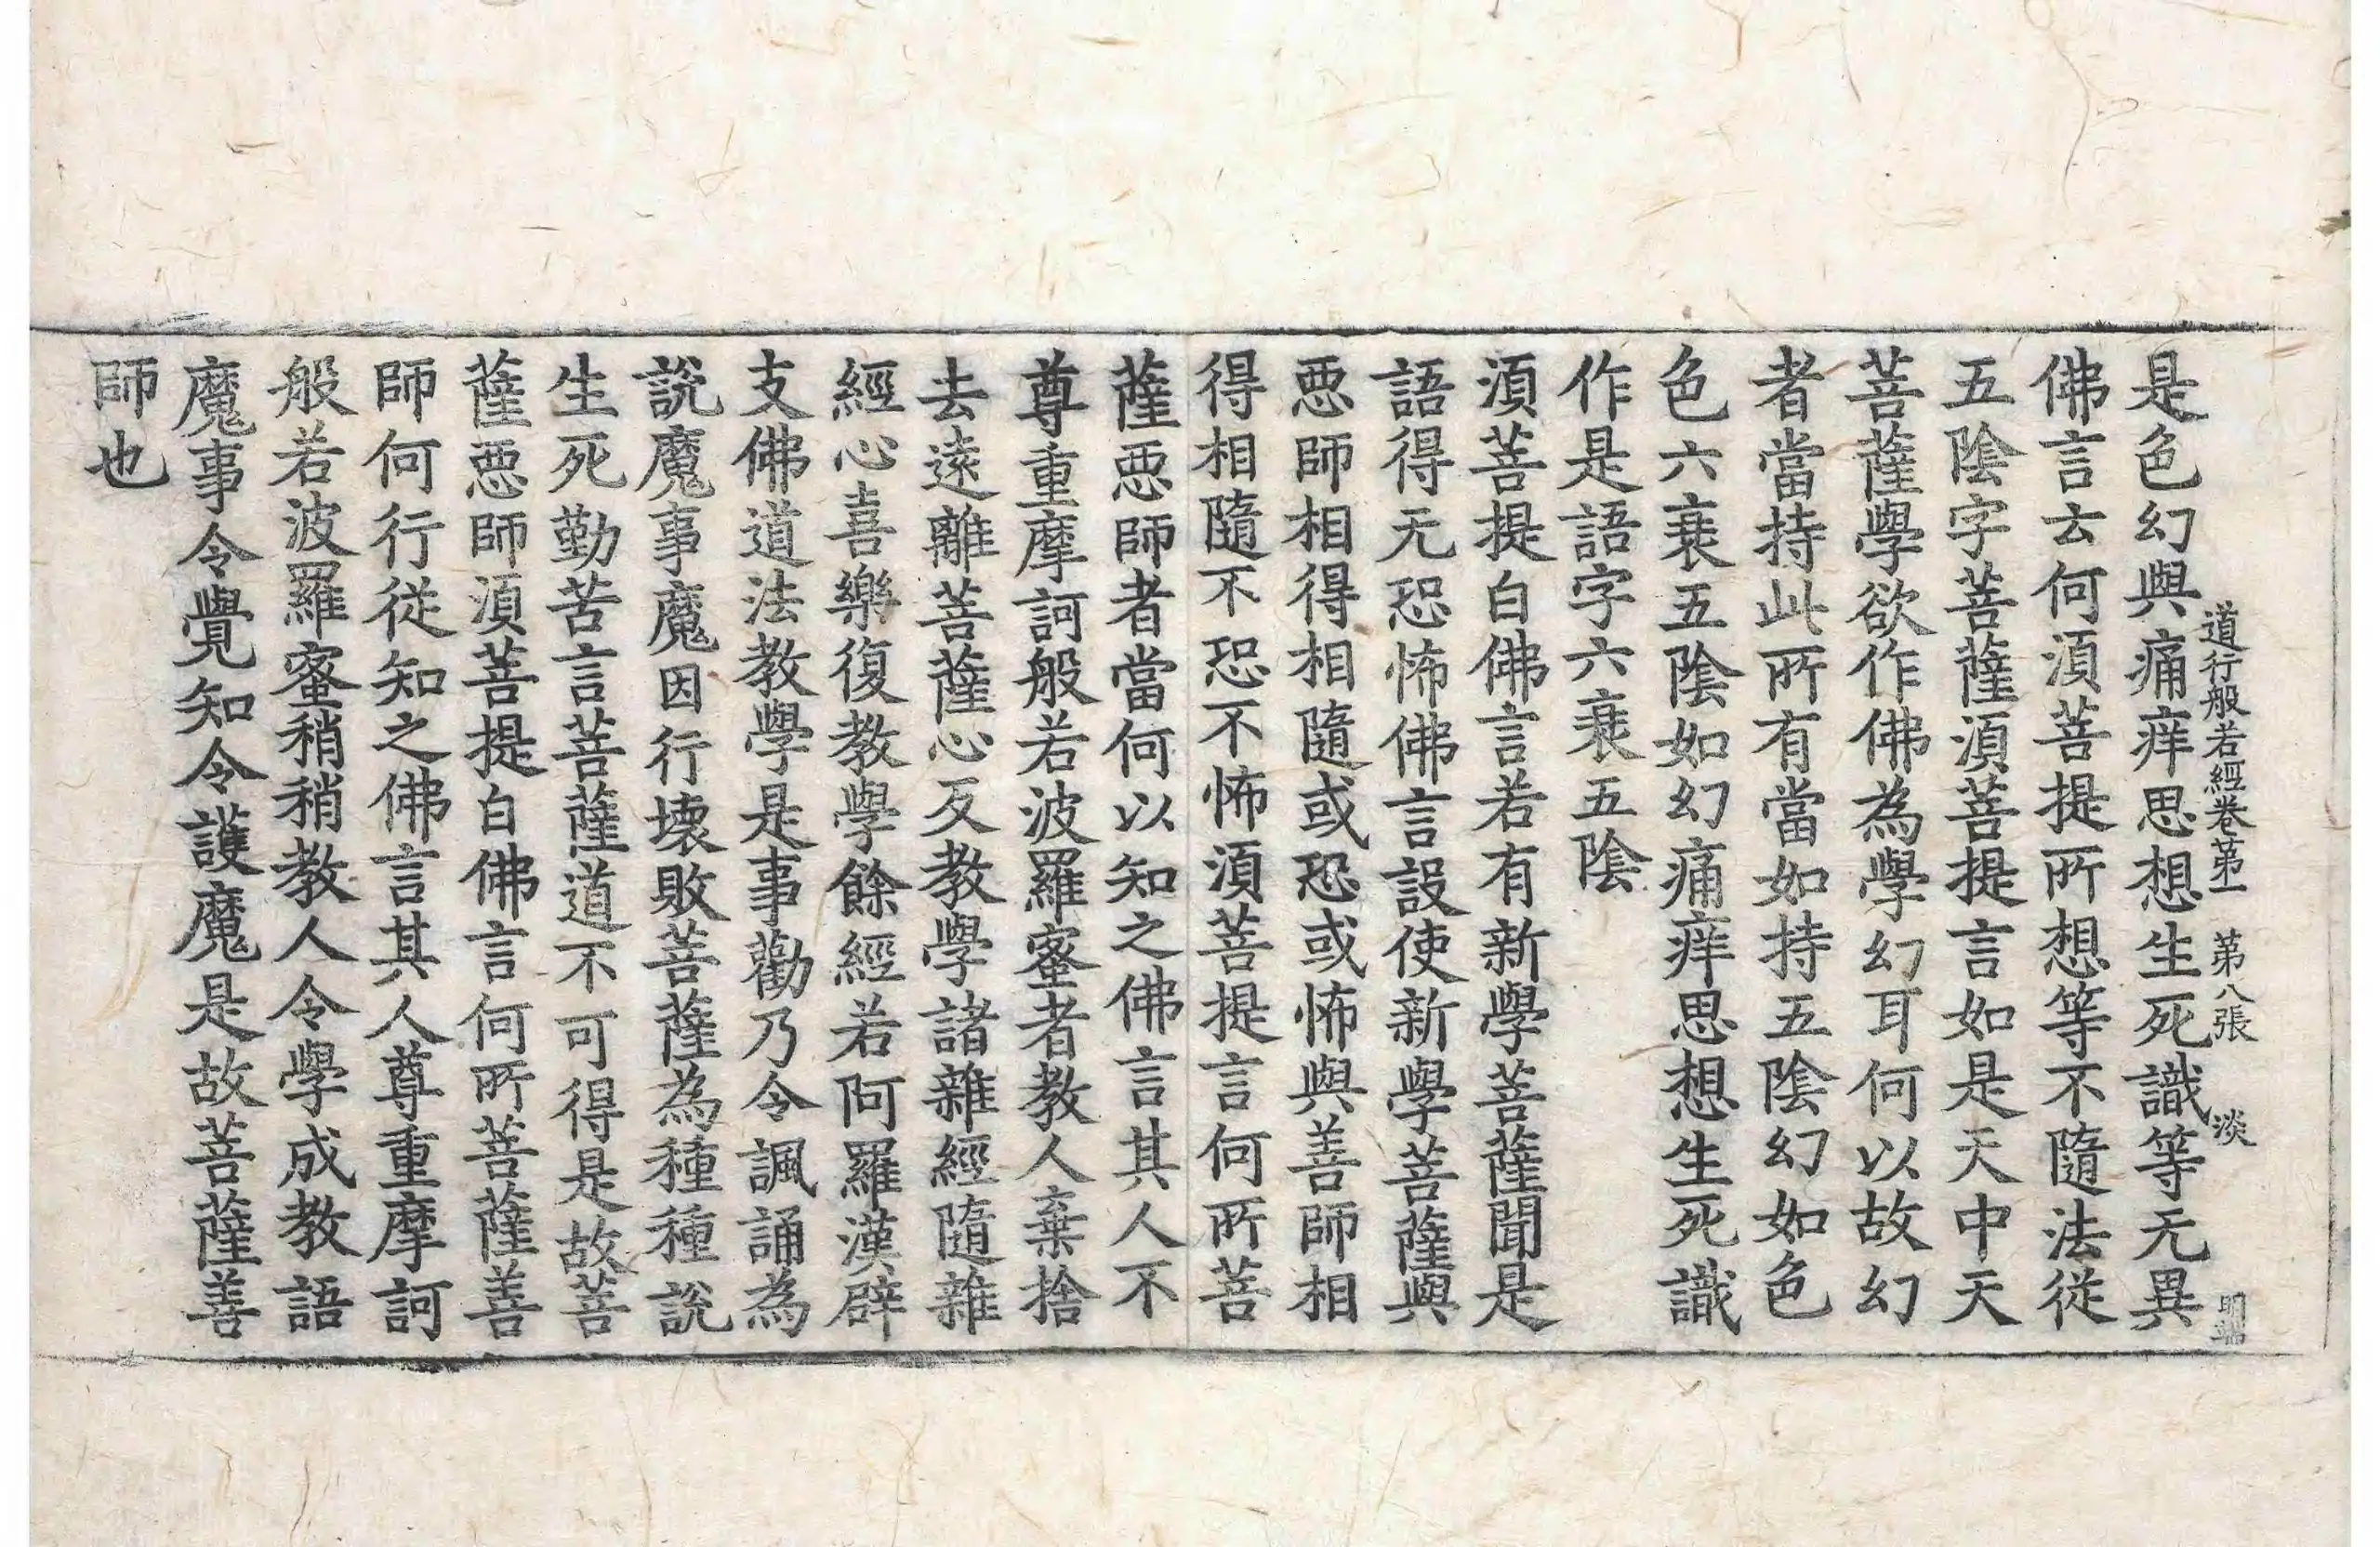 道行般若經卷第一 第八張 淡
是色幻與痛痒思想生死識等无異
佛言云何須菩提所想等不隨法從
五陰字菩薩須菩提言如是天中天
菩薩學欲作佛為學幻耳何以故幻
者當持此所有當如持五陰幻如色
色六衰五陰如幻痛痒思想生死識
作是語字六衰五陰
須菩提白佛言若有新學菩薩聞是
語得无恐怖佛言設使新學菩薩與
惡師相得相隨或恐或怖與善師相
得相隨不恐不怖須菩提言何所菩
薩惡師者當何以知之佛言其人不
尊重摩訶般若波羅蜜者教人棄捨
去遠離菩薩心反教學諸雜經隨雜
經心喜樂復教學餘經若阿羅漢辟
支佛道法教學是事勸乃令諷誦為
說魔事魔因行壞敗菩薩為種種說
生死勤苦言菩薩道不可得是故菩
薩惡師須菩提白佛言何所菩薩善
師何行從知之佛言其人尊重摩訶
般若波羅蜜稍稍教人令學成教語
魔事令覺知令護魔是故菩薩善
師也